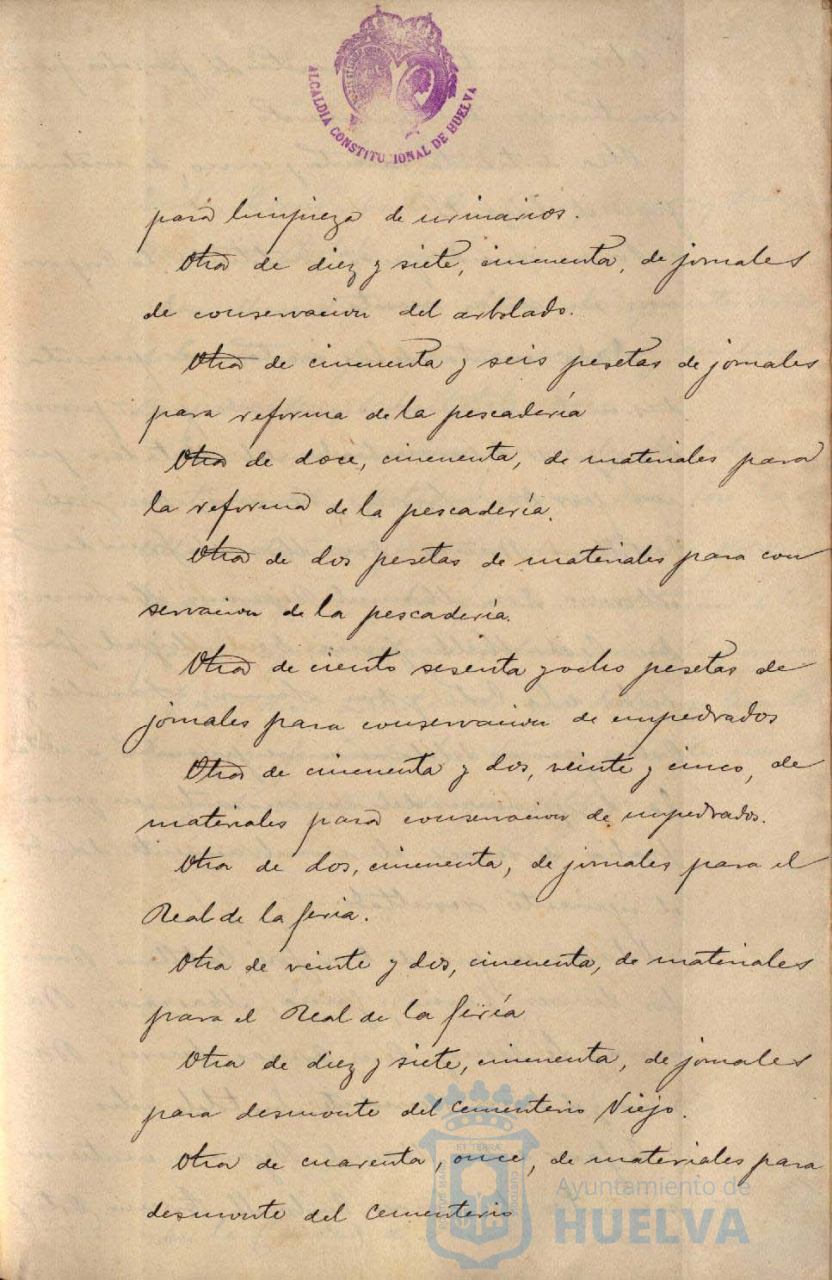 ALCALDIA CONSTITUCIONAL DE HUELVA
para limpieza de urinarios.
Otra de diez y siete, cincuenta, de jornales
de conservacion del arbolado.
Otra de cincuenta y seis pesetas de jornales
para reforma de la pescadería
Otra de doce, cincuenta, de materiales para
la reforma de la pescadería.
Otra de dos pesetas de materiales para con
servacion de la pescadería.
Otra de ciento sesenta y ocho pesetas de
jornales para conservacion de empedrados
Otra de cincuenta y dos, veinte y cinco, de
materiales para conservacion de empedrados.
Otra de dos, cincuenta, de jornales para el
Real de la feria.
Otra de veinte y dos, cincuenta, de materiales
para el Real de la fería
Otra de diez y siete, cincuenta, de jornales
para desmonte del cementerio Viejo.
Otra de cuarenta, once, de materiales para
desmonte del cementerio
Ayuntamiento de
HUELVA